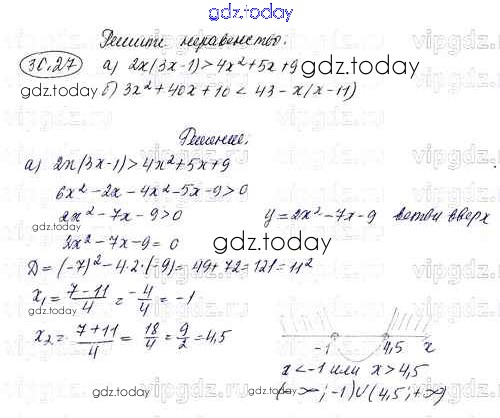 gdz.today
Решить неравенство:
30.27 а) 2x(3x-1)>4x²+5x+9
gdz.today
б) 3x²+40x+10<43-x(x-11)
Решение:
а) 2x(3x-1)>4x²+5x+9
gdz.today
6x²-2x-4x²-5x-9>0
2x²-7x-9>0 y=2x²-7x-9 ветви вверх
2x²-7x-9=0
gdz.today
D=(-7)²-4·2·(-9)=49+72=121=11²
x₁=(7-11)/4=-4/4=-1
gdz.today
x₂=(7+11)/4=18/4=9/2=4,5
-1 4,5 x
x<-1 или x>4,5
gdz.today
(-∞;-1)∪(4,5;+∞)
vipgdz.com